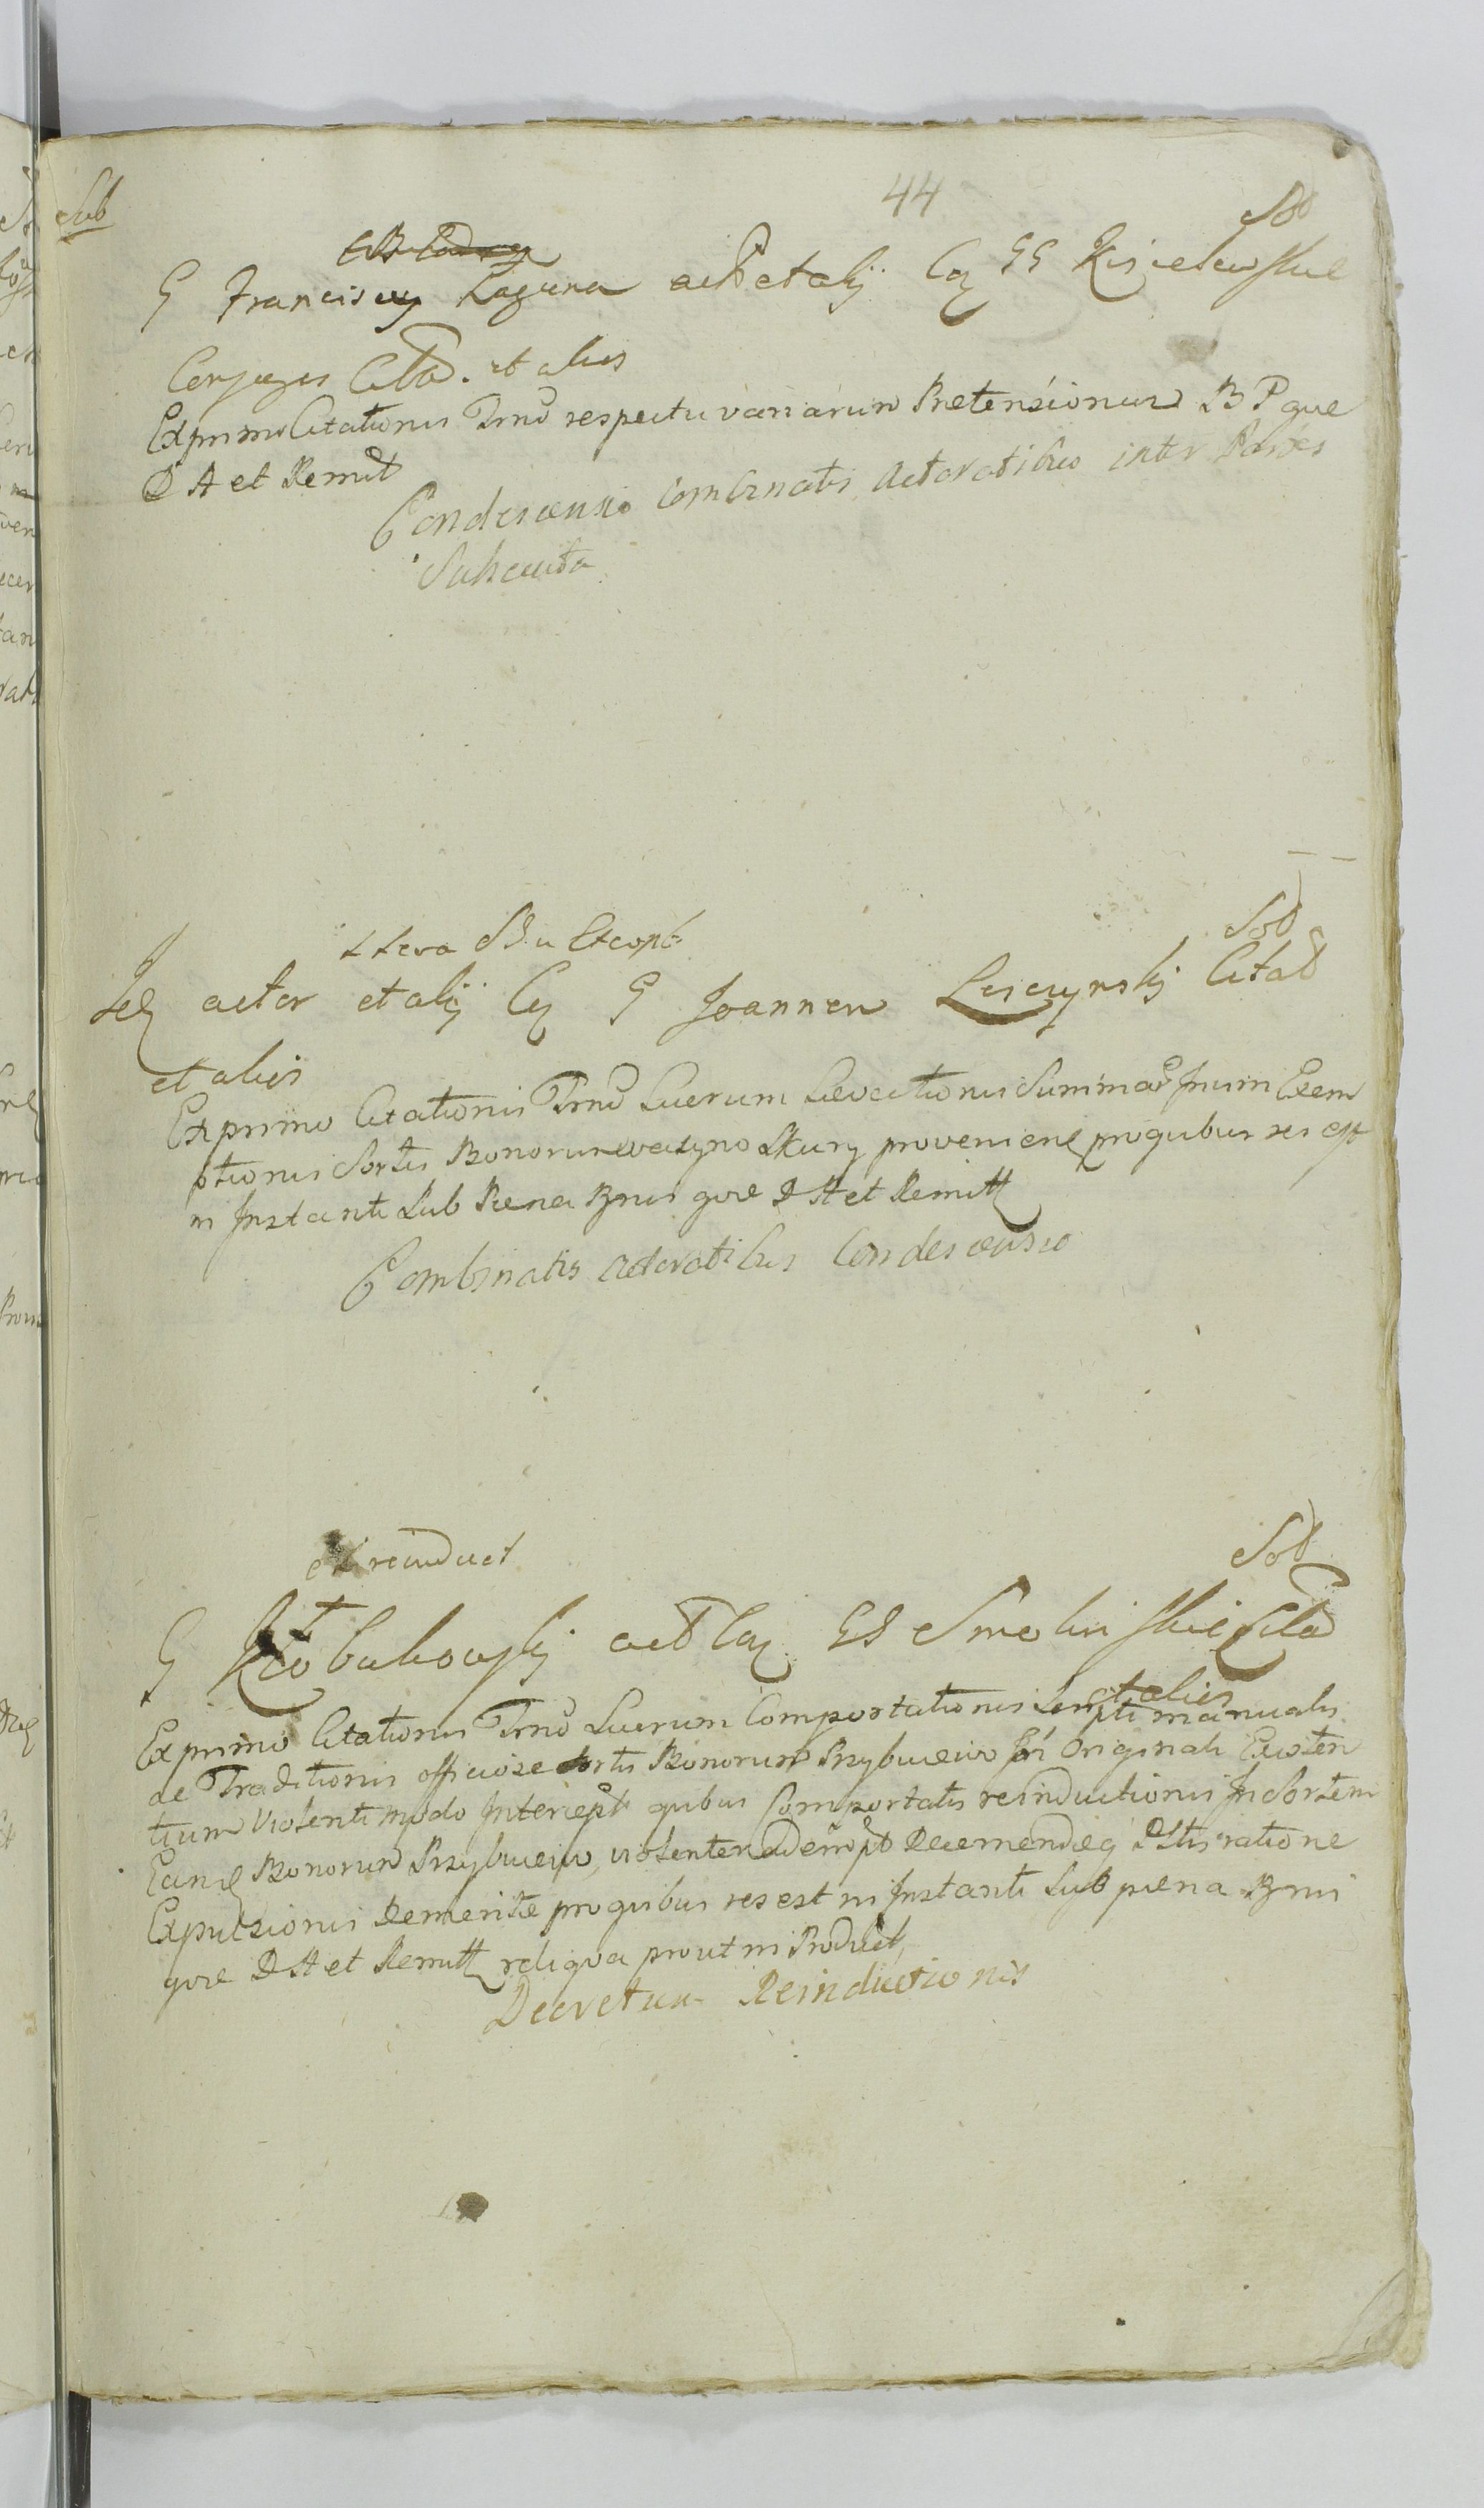 44
Sub
Sod
G Franciscus Laguna act et alij Cq GG Kisielewskie
Conjuges Citat. et alios
Ex primo Citationis Trno respectu variarum Pretensionum B P que
D A et Remitt
Condescensio combinatis Actoratibus inter Partes
Subsecuta
Sod
Idq actor et alij Cq G Joannem Lesczynskij Citat
et alios
Ex primo Citationis Trno Lucrum Levationis Summar Exem
ptionis Sortis Bonorum provenienq pro quibus res est
in Instanti Sub Pena Bnis que D A et Remitt
Combinatis actoratibus Condescensio
et reinduct
Sod
G act Cq GG Smolinskie Citat
et alios
Ex primo Citationis Trno Lucrum Comportationis Scripti manualis
de Traditionis officiose Sortis Bonorum Przybuwiw in Originali Existen
tium Violenti modo Intercept quibus Comportatis reinductionis In Sortem
Eandq Bonorum Przybuwiw, violenter adempt Decernendeq ratione
Expulsionis Demerite pro quibus res est in Instanti Sub pena Bnis
que D A et Remitt reliqua prout in Product
Decretum Reinductionis